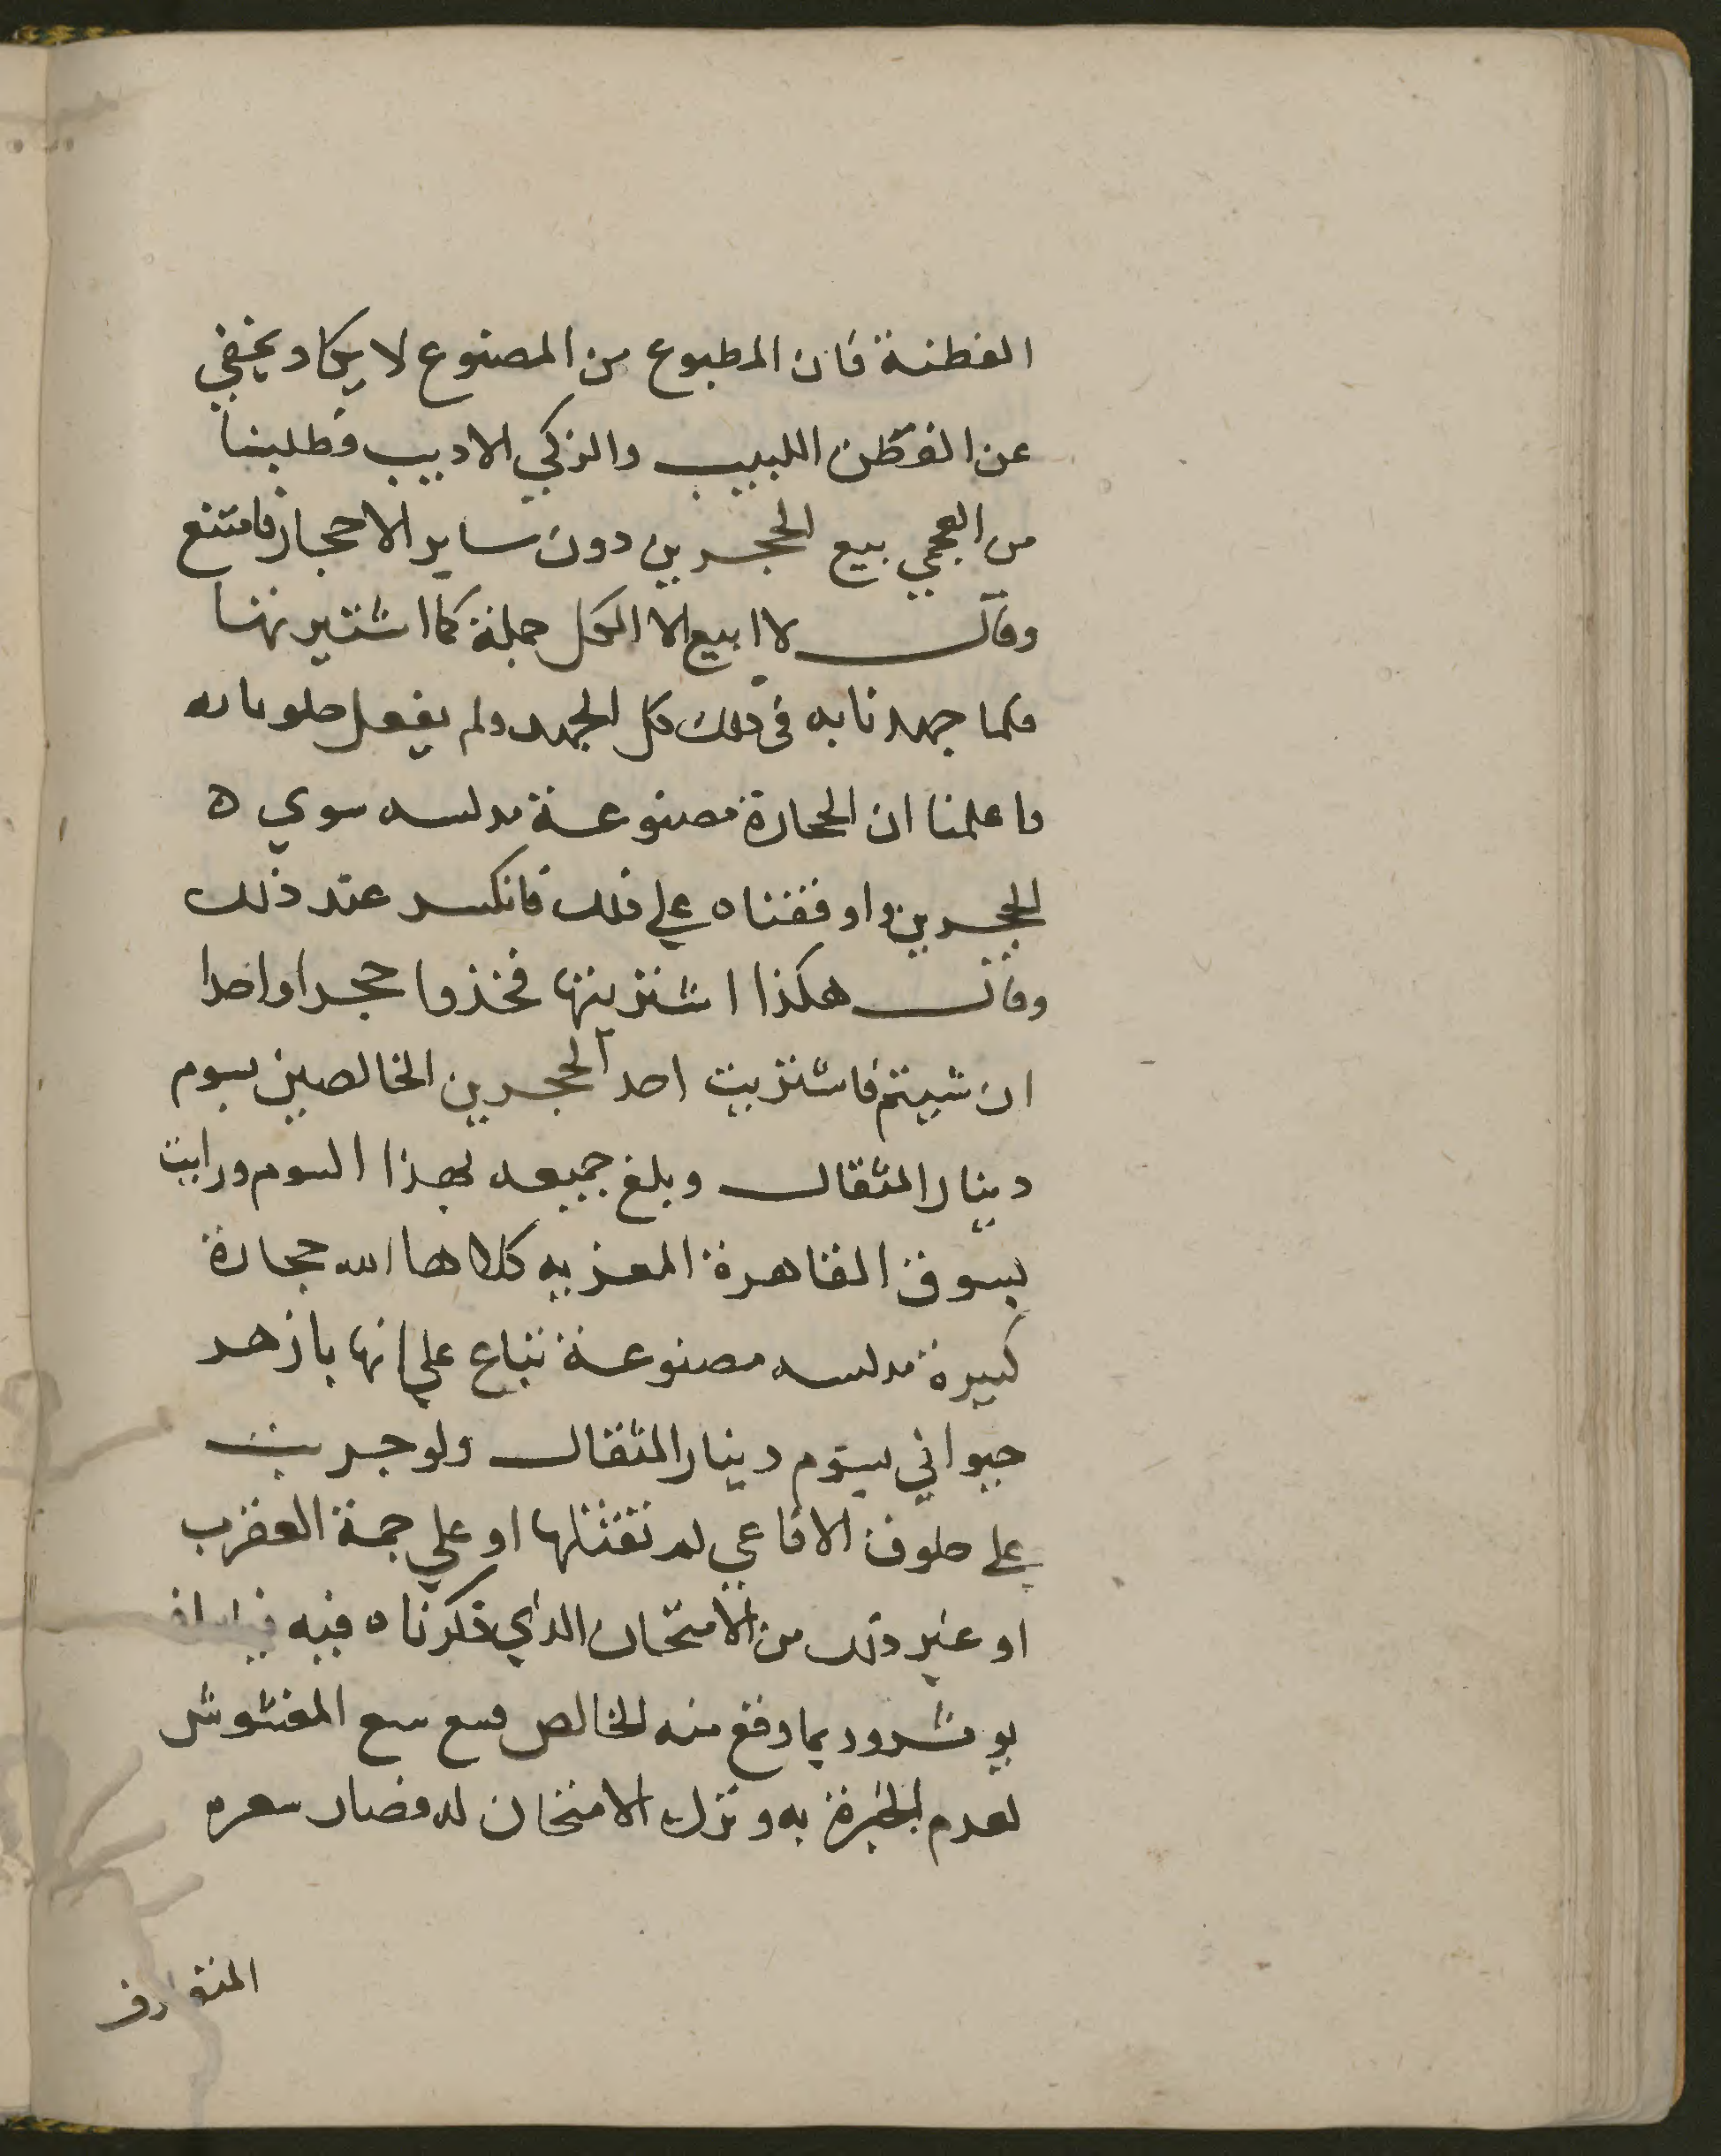 الفطنة فان المطبوع من المصنوع لا يكاد يخفي
عن الفطن اللبيب والزكي الاديب فطلبنا
من العجمي بيع الحجرين دون ساير الاحجار فامتنع
وقال لا ابيع الا الكل جملة كما اشتريتها
فلما جهدنا به في ذلك كل الجهد ولم يفعل
ما علمنا ان الحجارة مصنوعة مدلسه سوي ه
الحجرين واوقفناه علي ذلك فانكسر عند ذلك
وقال هكذا اشتريتها فخذوا حجرا واحدا
ان شيتم فاشتريت احد الحجرين الخالصين بسوم
دينار المثقال وبلغ جميعه بهذا السوم ورايت
بسوق القاهرة المعزيه كلاها الله حجارة
كبيرة مدلسه مصنوعة تباع علي انها بازهد
حيواني بسوم دينار المثقال ولو جربت
علي حلوق الافاعي لم تقتلها او علي حمة العقرب
او غير ذلك من الامتحان الذي ذكرناه فيه
وربما وقع منه الخالص فبيع بيع المغشوش
لعدم الخبرة به وترك الامتحان له فصار سعره